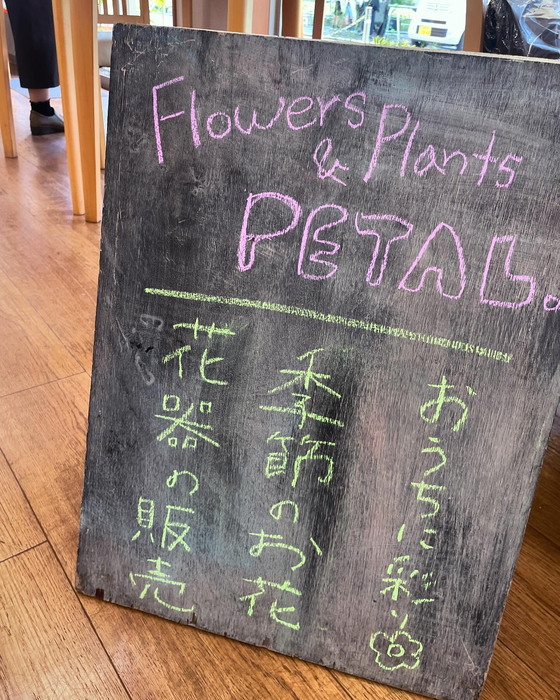 Flowers
& Plants
PETAL.
おうちに彩り
季節のお花
花器の販売